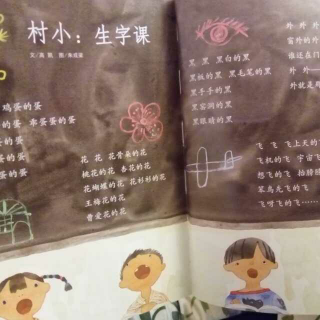 村小：生字课
鸡蛋的蛋
的蛋 乖蛋蛋的蛋
蛋的蛋
的蛋
的蛋
的蛋
花 花 花骨朵的花
桃花的花 杏花的花
花蝴蝶的花 花衫衫的花
王梅花的花
曹爱花的花
黑 黑 黑白的黑
黑板的黑 黑毛笔的黑
黑手手的黑
黑窑洞的黑
黑眼睛的黑
外 外 外
窗外的外
谁还在门
外 外
外就是那
飞 飞 飞上天的
飞机的飞 宇宙飞
想飞的飞 抬膀膀
笨鸟先飞的飞
飞呀飞的飞……